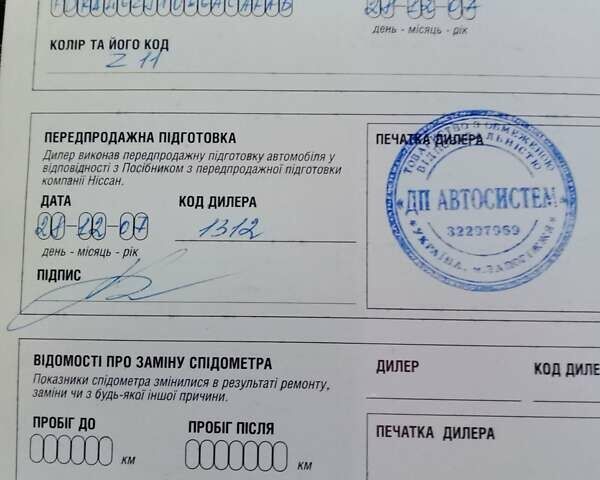 28-12-07
день - місяць - рік
КОЛІР ТА ЙОГО КОД
Z 11
ПЕРЕДПРОДАЖНА ПІДГОТОВКА
Дилер виконав передпродажну підготовку автомобіля у
відповідності з Посібником з передпродажної підготовки
компанії Ніссан.
ДАТА
КОД ДИЛЕРА
28-12-07
1312
день - місяць - рік
ПІДПИС
ПЕЧАТКА ДИЛЕРА
ТОВАРИСТВО З ОБМЕЖЕНОЮ
ВІДПОВІДАЛЬНІСТЮ
ДП АВТОСИСТЕМ
32297969
УКРАЇНА, м. ЗАПОРІЖЖЯ
ВІДОМОСТІ ПРО ЗАМІНУ СПІДОМЕТРА
Показники спідометра змінилися в результаті ремонту,
заміни чи з будь-якої іншої причини.
ПРОБІГ ДО
ПРОБІГ ПІСЛЯ
км
км
ДИЛЕР
КОД ДИЛЕ
ПЕЧАТКА ДИЛЕРА